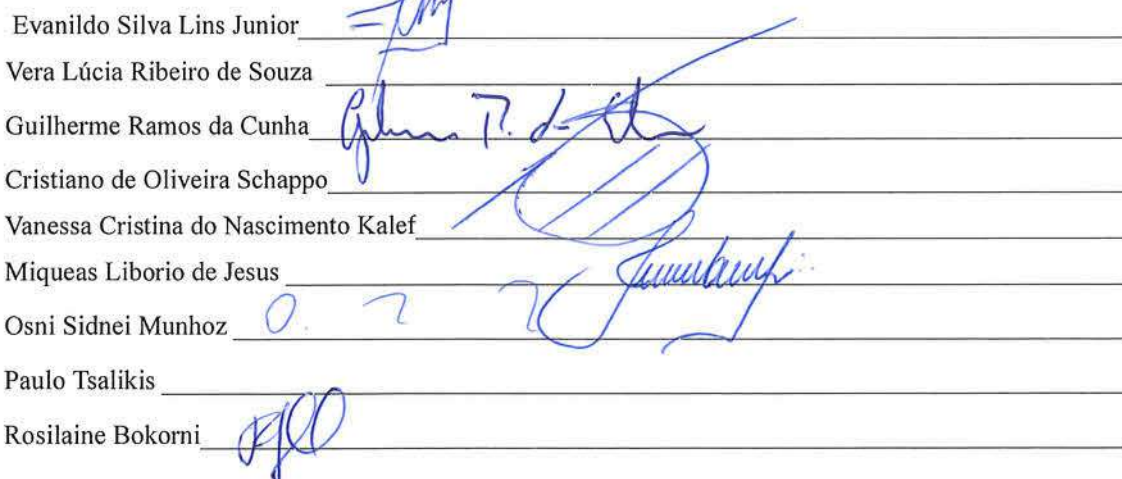 Evanildo Silva Lins Junior
Vera Lúcia Ribeiro de Souza
Guilherme Ramos da Cunha
Cristiano de Oliveira Schappo
Vanessa Cristina do Nascimento Kalef
Miqueas Liborio de Jesus
Osni Sidnei Munhoz
Paulo Tsalikis
Rosilaine Bokorni